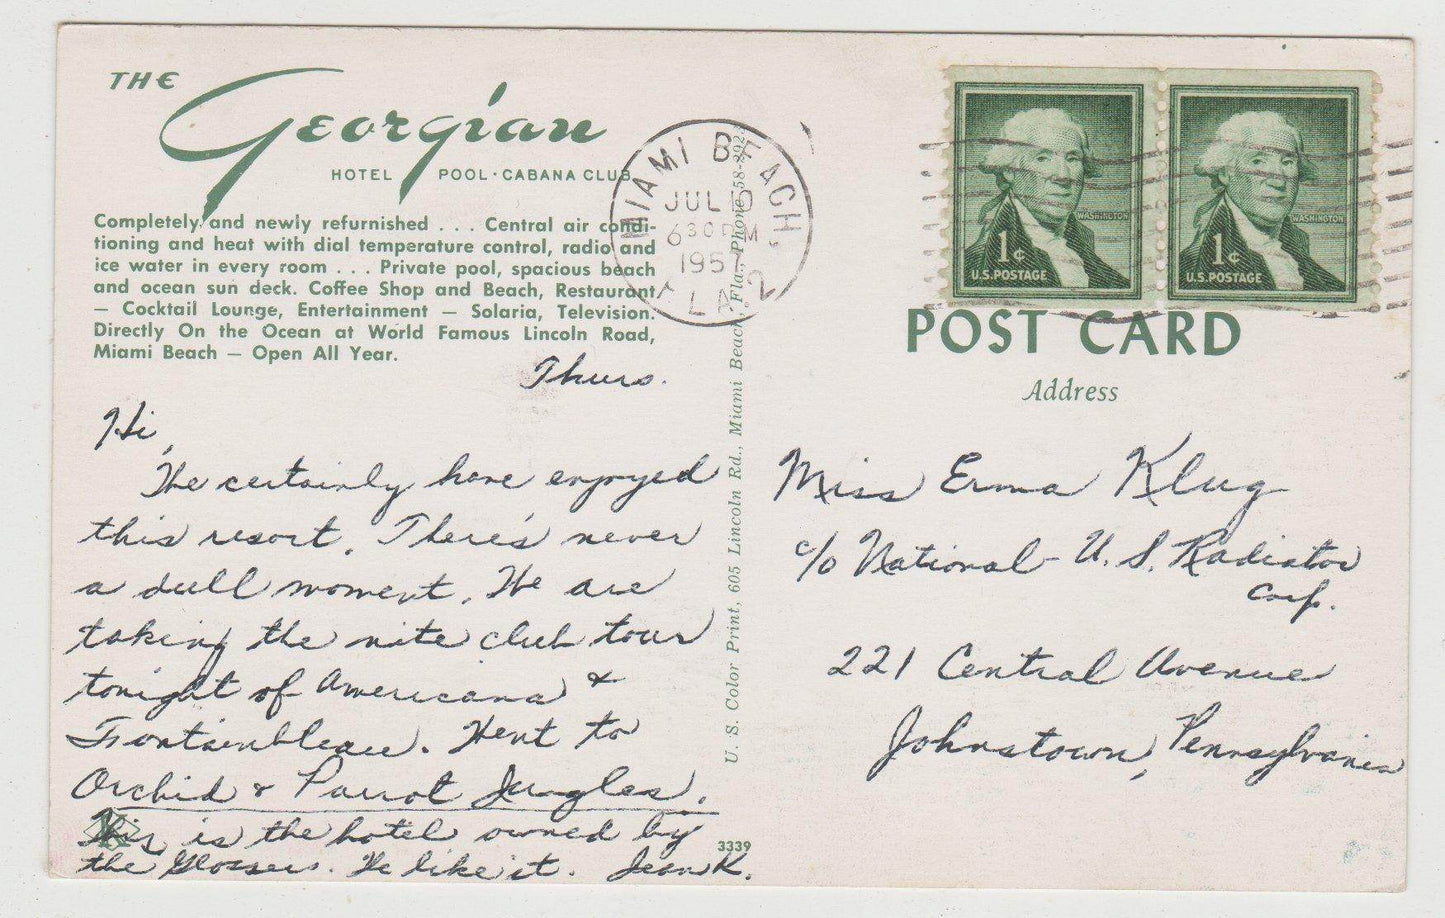 THE
Georgian
HOTEL POOL·CABANA CLUB
Completely and newly refurnished . . . Central air condi-
tioning and heat with dial temperature control, radio and
ice water in every room . . . Private pool, spacious beach
and ocean sun deck. Coffee Shop and Beach, Restaurant
— Cocktail Lounge, Entertainment — Solaria, Television.
Directly On the Ocean at World Famous Lincoln Road,
Miami Beach — Open All Year.
Thurs.
Hi,
We certainly have enjoyed
this resort. There's never
a dull moment. We are
taking the nite club tour
tonight of Americana &
Fontainbleau. Went to
Orchid & Parrot Jungles.
This is the hotel owned by
the Glossers. We like it. Jean K.
3339
U. S. Color Print, 605 Lincoln Rd., Miami Beach, Fla., Phone 58-
MIAMI BEACH,
JUL 10
630 PM
1957
FLA 2
WASHINGTON
1¢
U.S. POSTAGE
WASHINGTON
1¢
U.S. POSTAGE
POST CARD
Address
Miss Erma Klug
c/o National-U. S. Radiator
Corp.
221 Central Avenue
Johnstown, Pennsylvania